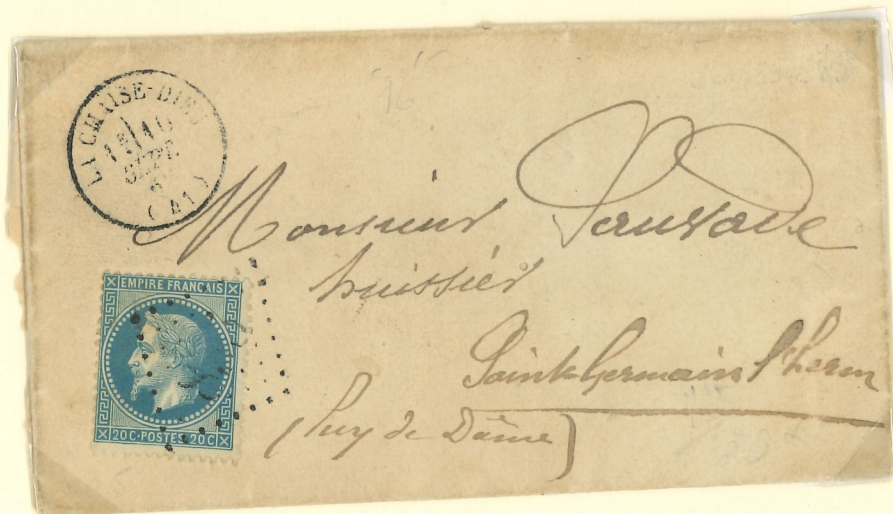 LA CHAISE-DIEU
SEPT
(41)
Monsieur
huissier
Saint Germain l'herm
(Puy de Dôme)
EMPIRE FRANÇAIS
20C·POSTES·20C